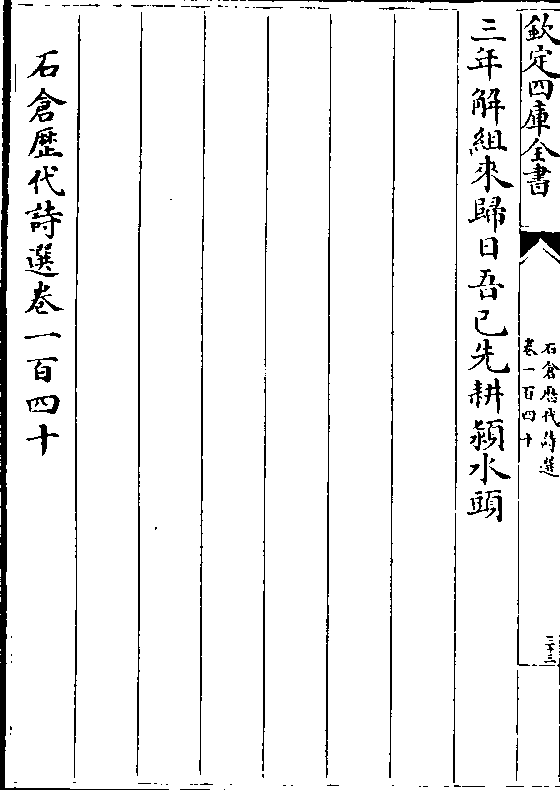 欽定四庫全書
石倉歷代詩選
卷一百四十
三十三
三年解組來歸日吾已先耕潁水頭
石倉歷代詩選卷一百四十